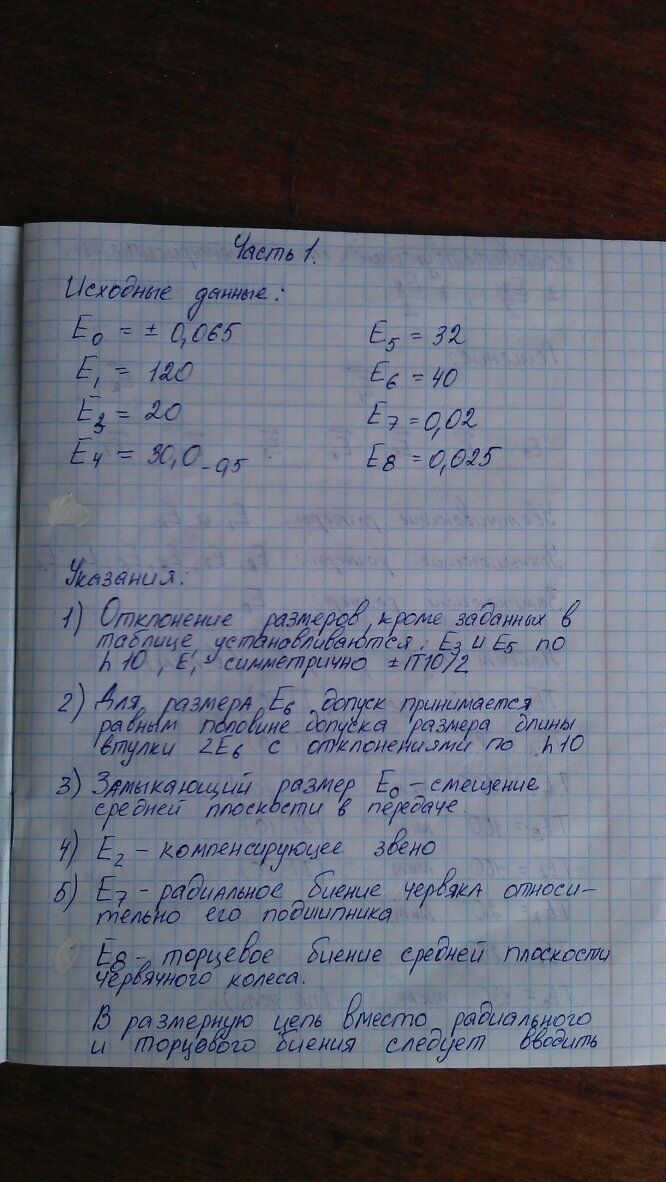 Часть 1.
Исходные данные:
E0 = ± 0,065
E1 = 120
E3 = 20
E4 = 30,0 -0,5
E5 = 32
E6 = 40
E7 = 0,02
E8 = 0,025
Указания:
1) Отклонение размеров, кроме заданных в
таблице, устанавливаются: E3 и E5 по
h10, E1 - симметрично ± IT10/2
2) Для размера E6 допуск принимается
равным половине допуска размера длины
втулки 2E6 с отклонениями по h10
3) Замыкающий размер E0 - смещение
средней плоскости в передаче.
4) E2 - компенсирующее звено
5) E7 - радиальное биение червяка относи-
тельно его подшипника
E8 - торцевое биение средней плоскости
червячного колеса.
В размерную цепь вместо радиального
и торцового биения следует вводить